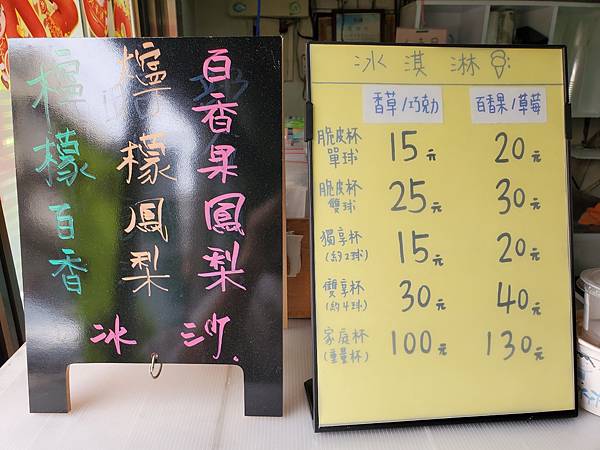 百香果鳳梨
檸檬鳳梨
檸檬百香
冰沙
冰淇淋
香草/巧克力 百香果/草莓
脆皮杯 單球 15元 20元
脆皮杯 雙球 25元 30元
獨享杯 (約2球) 15元 20元
雙享杯 (約4球) 30元 40元
家庭杯 (重量杯) 100元 130元